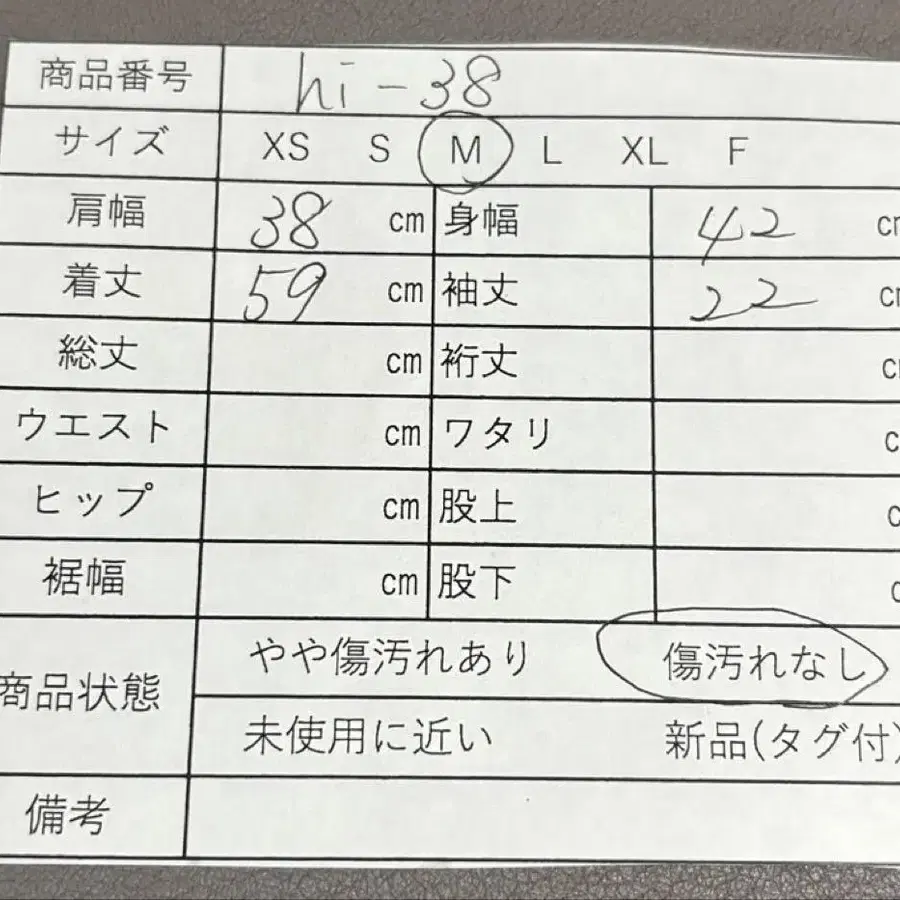 商品番号 hi-38
サイズ XS S M L XL F
肩幅 38 cm 身幅 42 cm
着丈 59 cm 袖丈 22 cm
総丈 cm 裄丈 cm
ウエスト cm ワタリ c
ヒップ cm 股上 c
裾幅 cm 股下 c
商品状態 やや傷汚れあり 傷汚れなし
未使用に近い 新品(タグ付)
備考